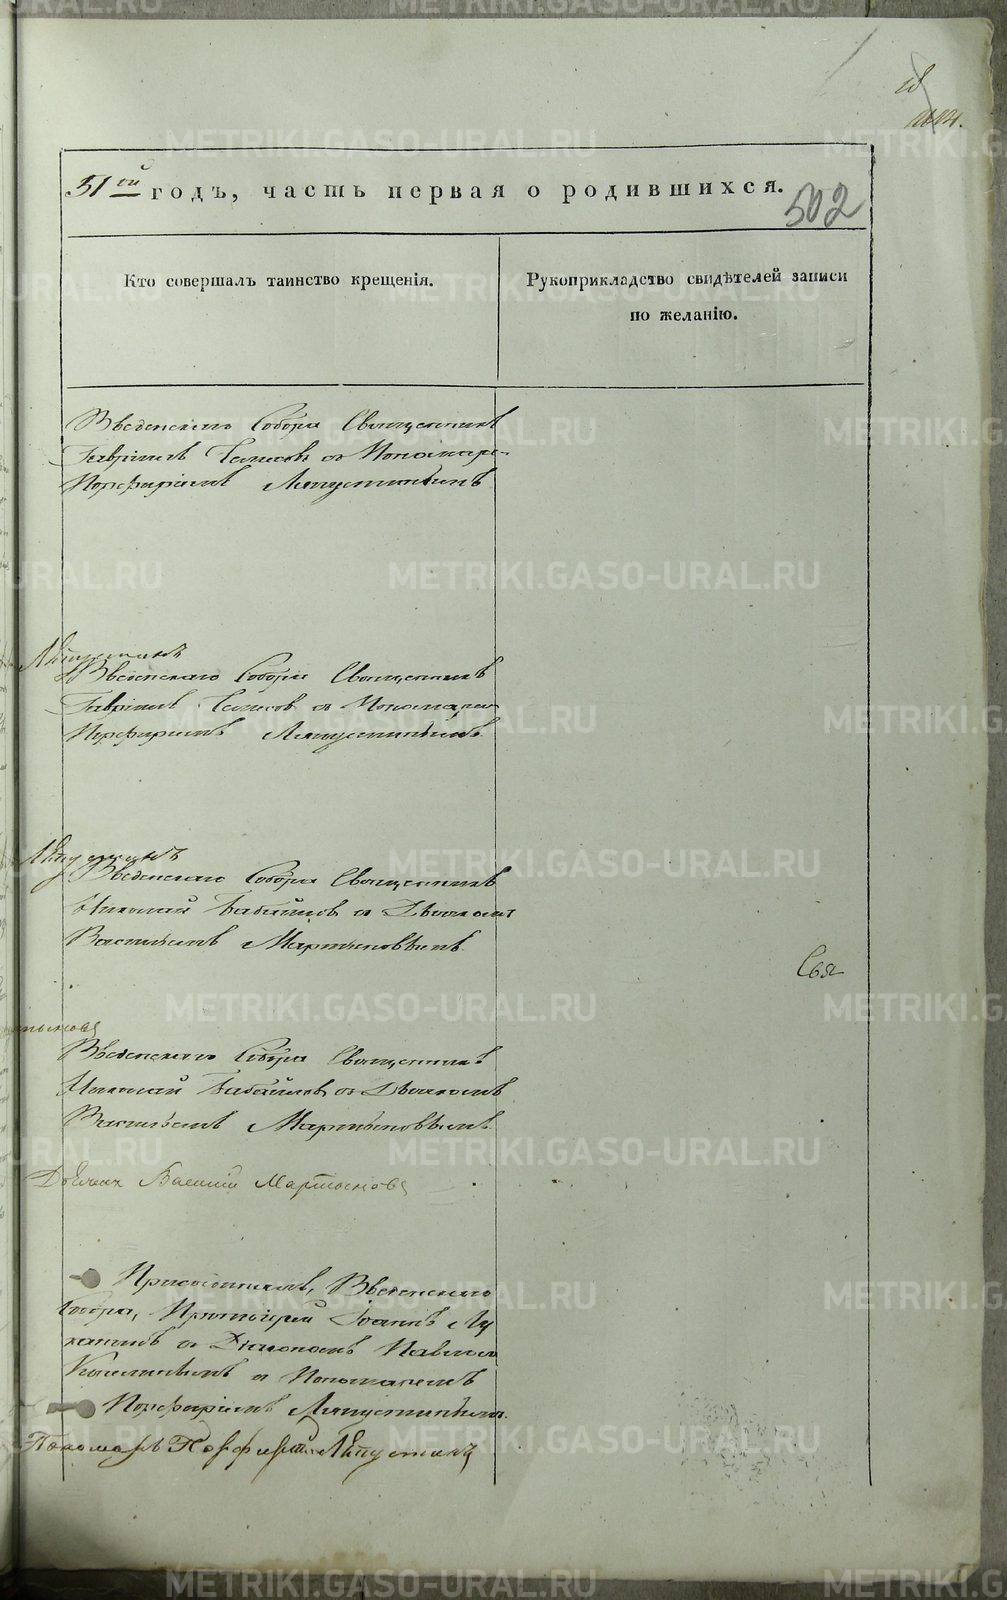 502
51ой годъ, часть первая о родившихся.
Кто совершалъ таинство крещенія.
Рукоприкладство свидѣтелей записи
по желанію.
Введенскаго Собора Священникъ
Гавріилъ съ Пономаремъ
Порфиріемъ Ляпустинымъ
Ляпустинъ
Введенскаго Собора Священникъ
Гавріилъ съ Пономаремъ
Порфиріемъ Ляпустинымъ
Ляпустинъ
Введенскаго Собора Священникъ
Николай Бабайловъ съ Дьякомъ
Васильемъ Мартыновымъ
Введенскаго Собора Священникъ
Николай Бабайловъ съ Дьякомъ
Васильемъ Мартыновымъ
Василий Мартыновъ
Введенскаго
Собора, Протоіерей Іоаннъ Лу
канинъ съ Діакономъ Павломъ
и Пономаремъ
Порфиріемъ Ляпустинымъ.
Пономарь Порфирій Ляпустинъ
METRIKI.GASO-URAL.RU